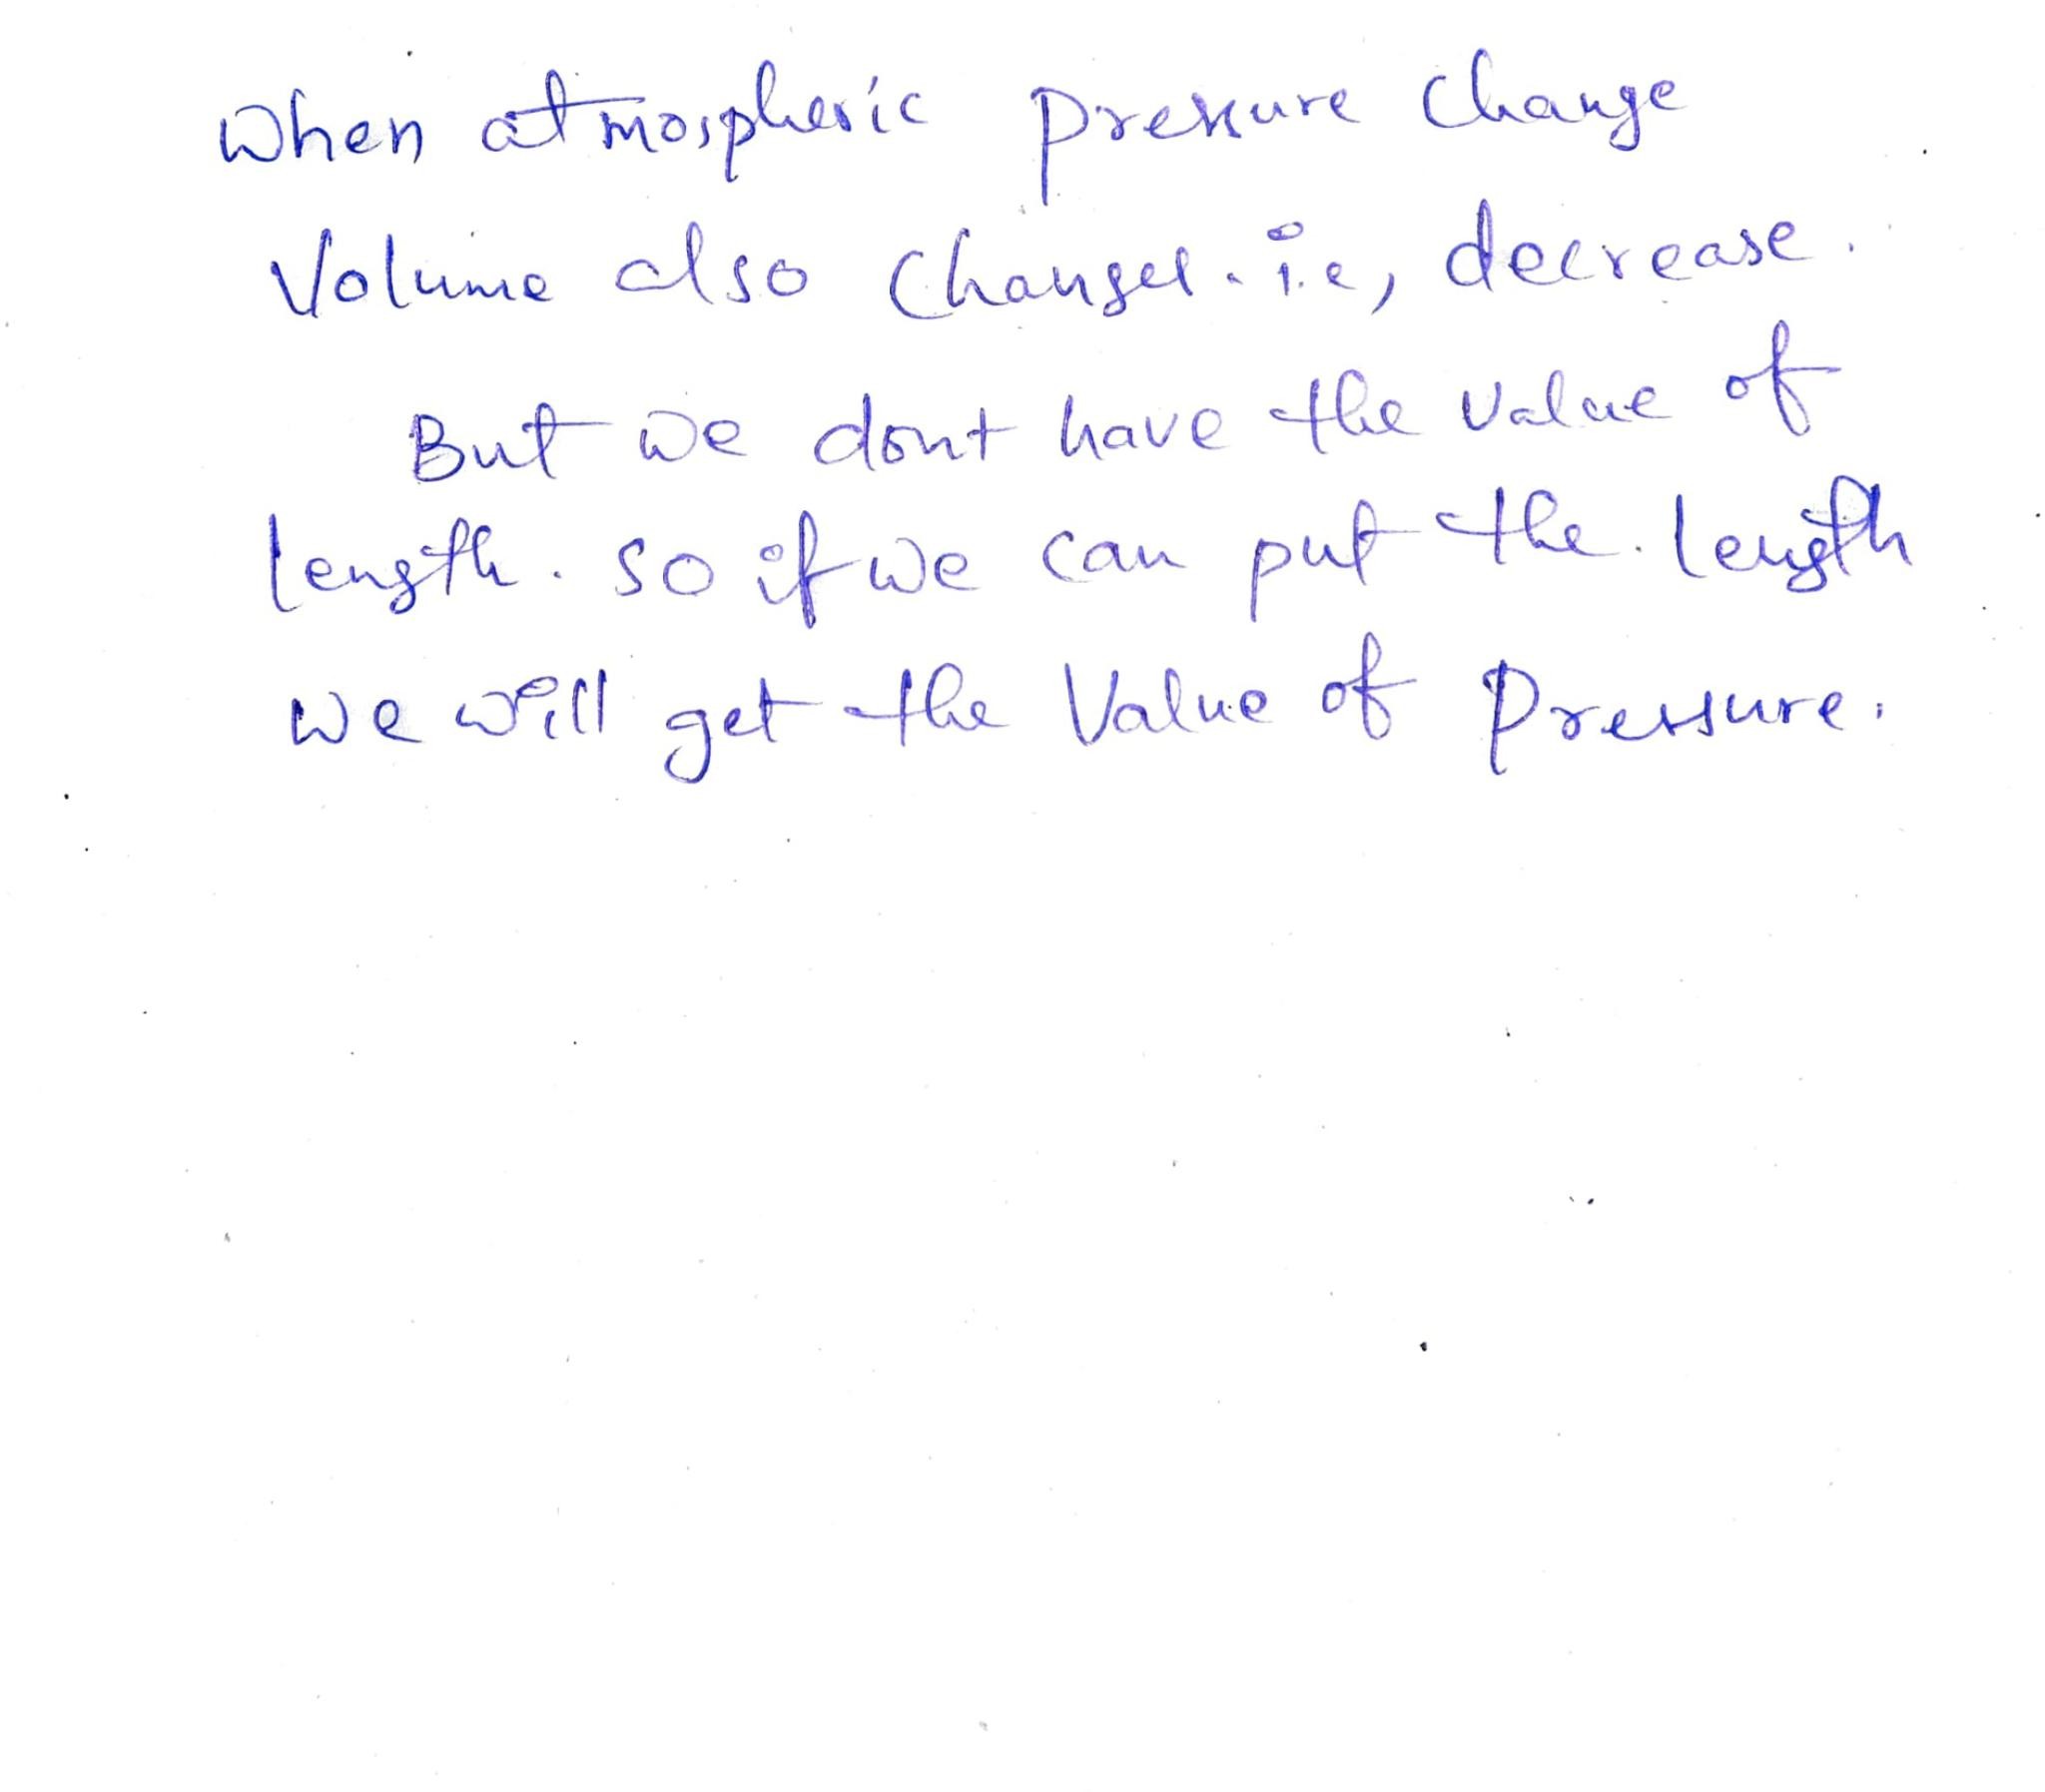 When atmospheric pressure change
Volume also changes. i.e, decrease.
But we dont have the value of
length. so if we can put the length
we will get the Value of Pressure.